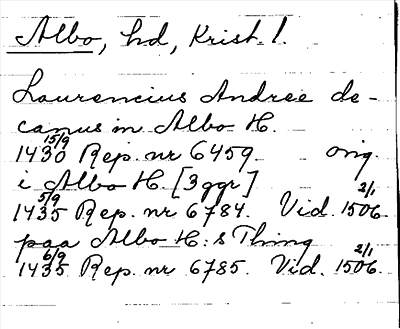 Albo, hd, Krist. l.
Laurencius Andree de-
canus in Albo H.
1430 15/9 Rep. nr 6459. orig.
i Albo H. [3 ggr]
1435 5/9 Rep. nr 6784. Vid. 1506 2/1
paa Albo H:s Thing
1435 6/9 Rep. nr 6785. Vid. 1506 2/1